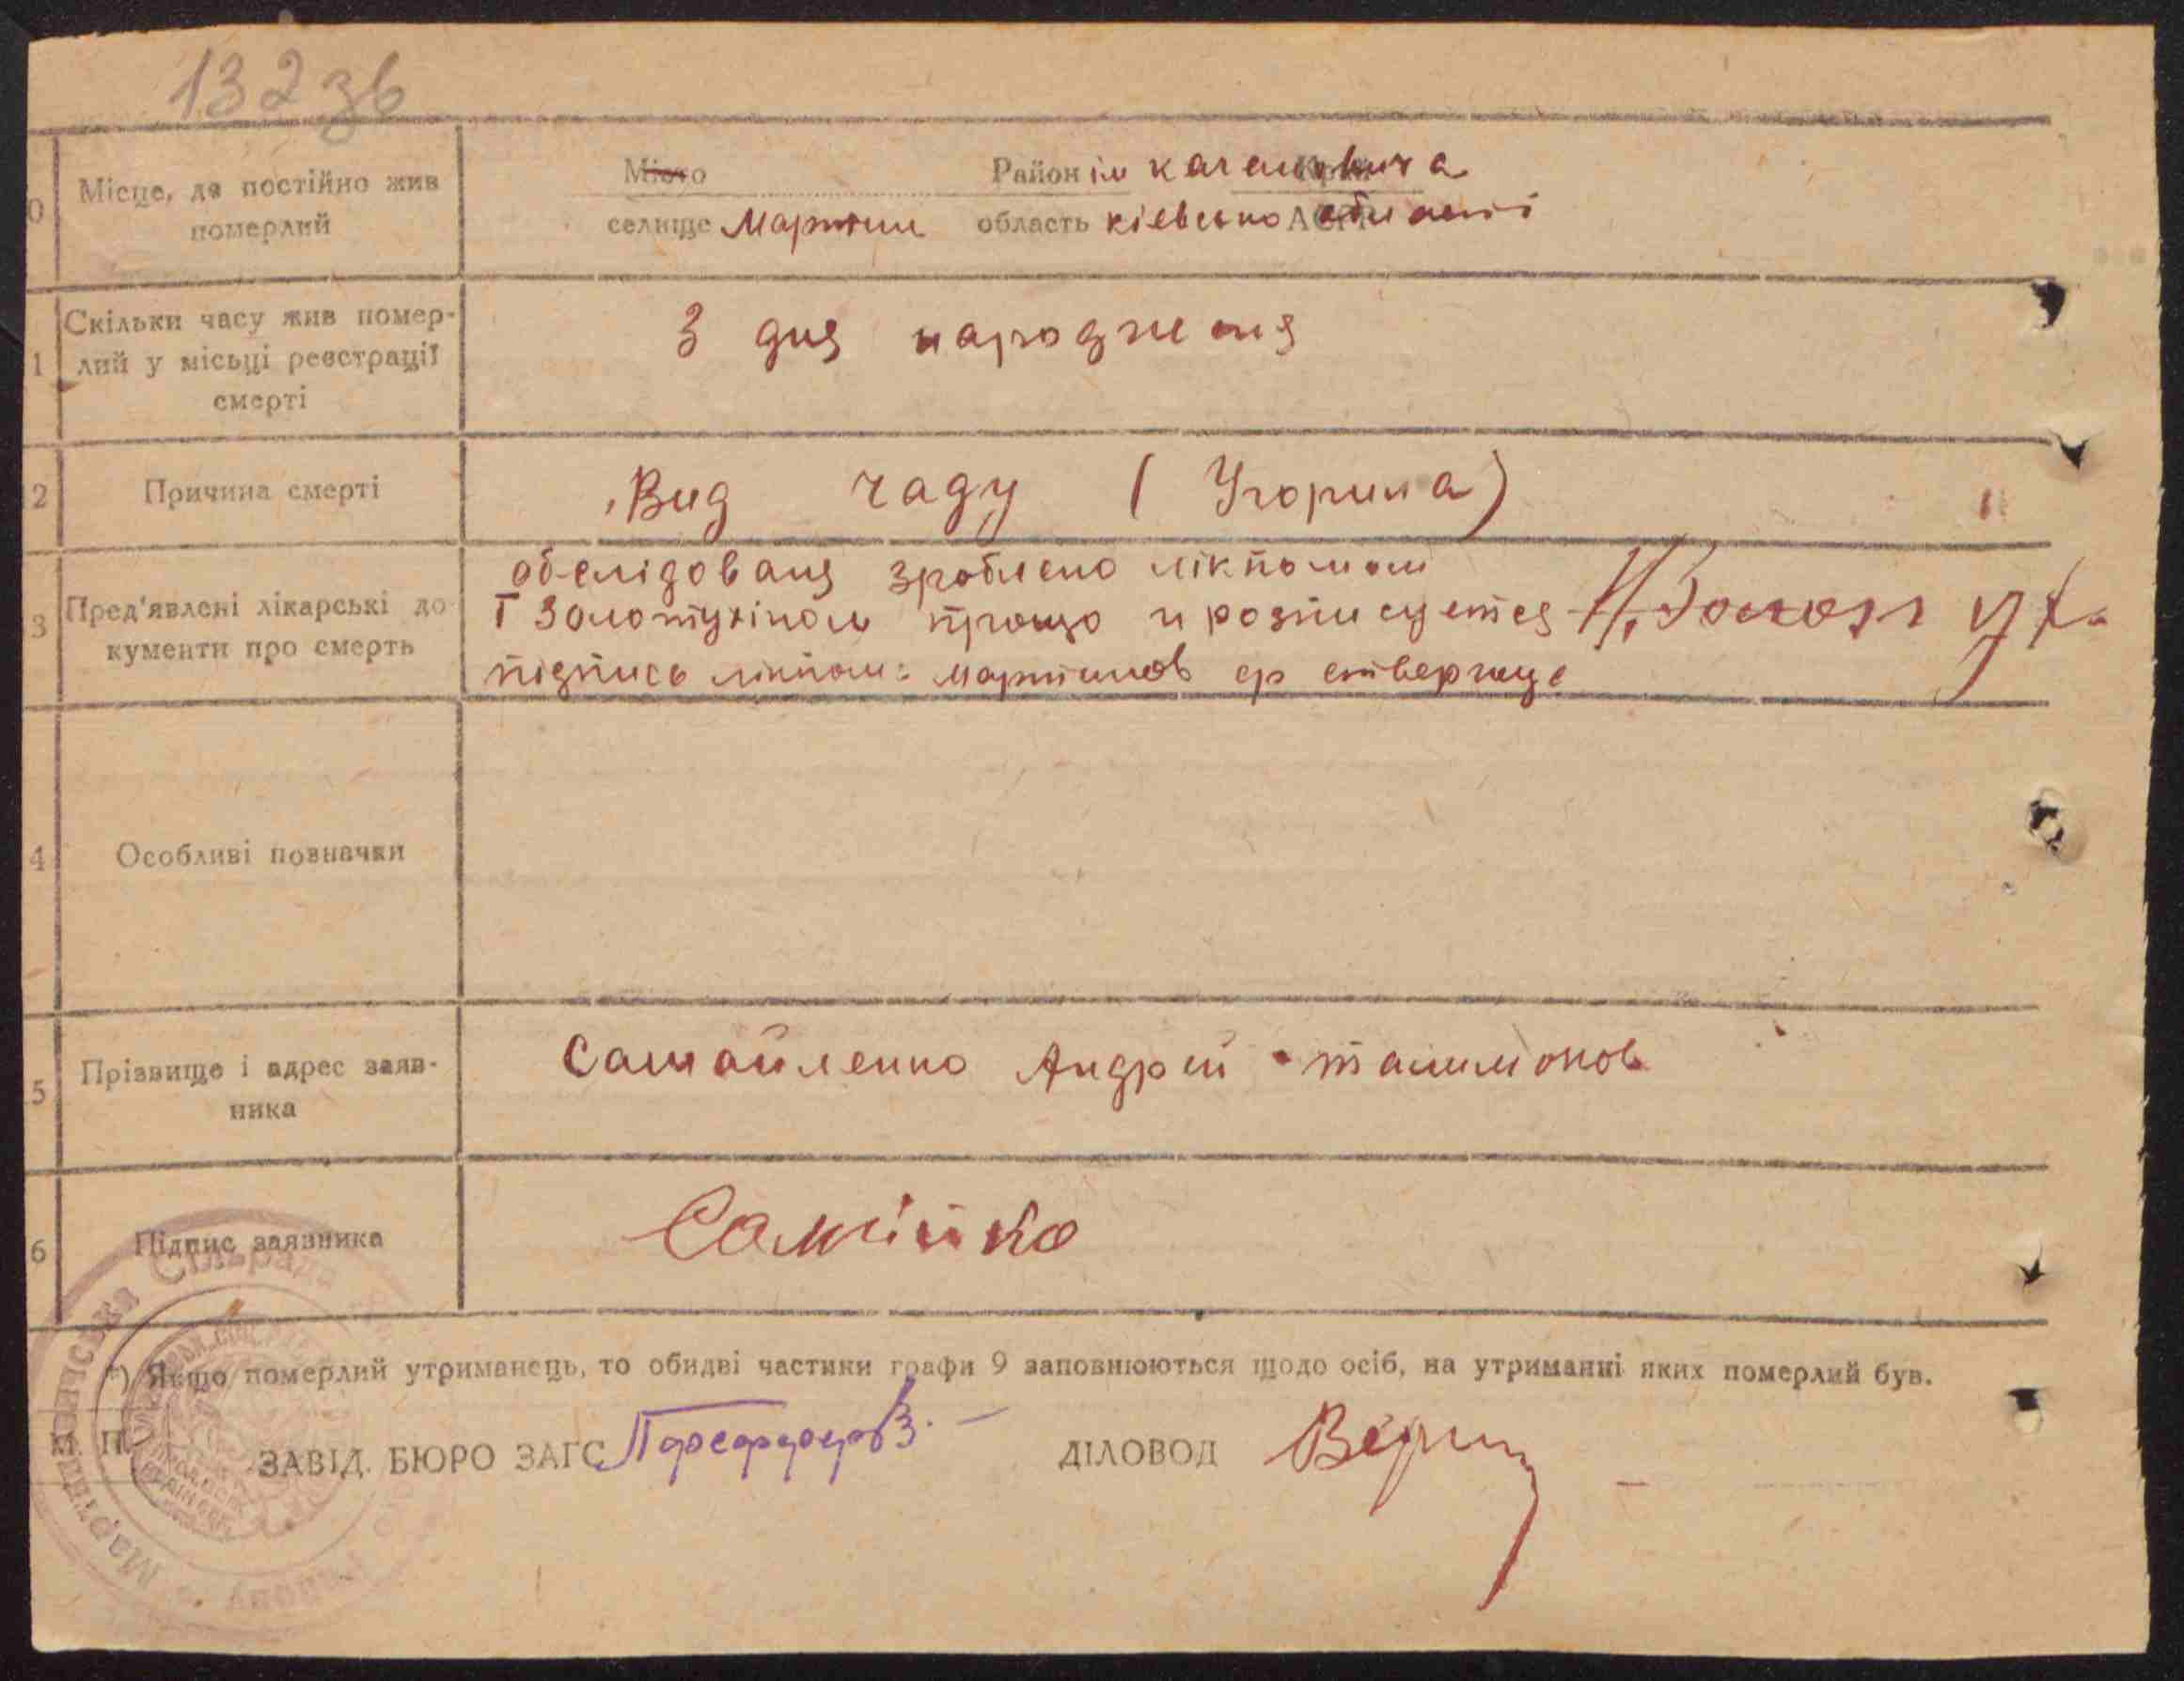 132 зв
0 Місце, де постійно жив
померлий
Місто Район ім кагановича
селище Мартин область кіевсько области
1 Скільки часу жив помер-
лий у місьці реєстрації
смерті
З дня народженя
2 Причина смерті
Вид чаду (Угорила)
3 Пред'явлені лікарські до
кументи про смерть
обслідованя зроблено лікпомом
Т Золотухіном прощо и розписуется
підпись лікпом: Мартинов ср стверчуе
4 Особливі позначки
5 Прізвище і адрес заяв-
ника
Самойленко Андрей
6 Підпис заявника
Сільрада
*) Якщо померлий утриманець, то обидві частини графи 9 заповнюються щодо осіб, на утриманні яких померлий був.
М П
ЗАВІД. БЮРО ЗАГС ДІЛОВОД